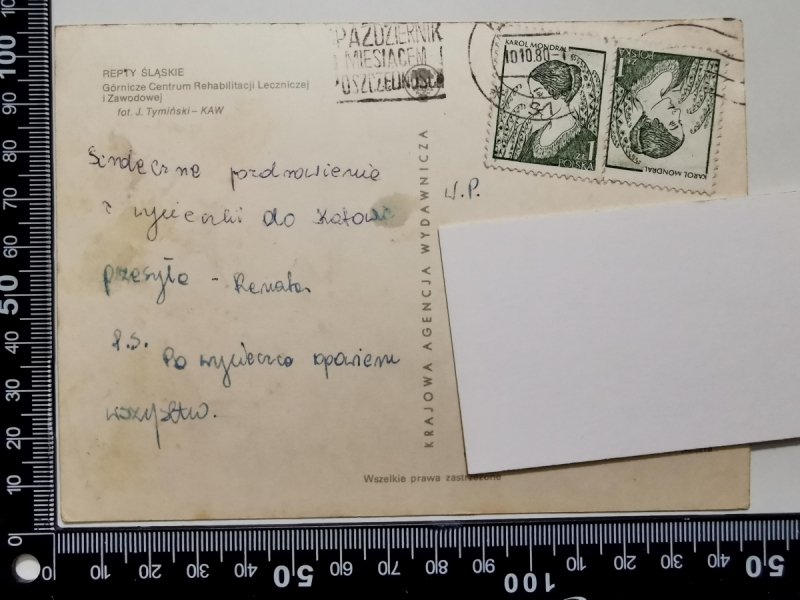 REPTY ŚLĄSKIE
Górnicze Centrum Rehabilitacji Leczniczej
i Zawodowej
fot. J. Tymiński – KAW
PAŹDZIERNIK
MIESIĄCEM
OSZCZĘDNOŚCI
10.10.80
KAROL MONDRAL
POLSKA 1
KAROL MONDRAL
POLSKA 1
Serdeczne pozdrowienia
z wycieczki do Katowic
przesyła - Renata
P.S. Po wycieczce opowiem
wszystko.
KRAJOWA AGENCJA WYDAWNICZA
W.P.
Wszelkie prawa zastrzeżone